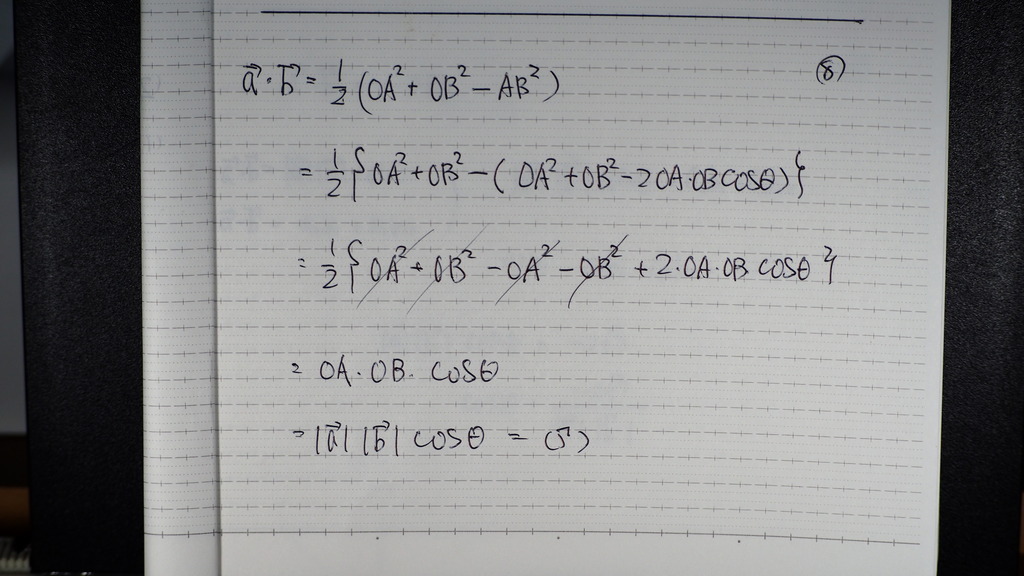 a⃗·b⃗ = 1/2 (OA² + OB² − AB²) (8)
= 1/2 { OA² + OB² − ( OA² + OB² − 2 OA·OB cosθ) }
= 1/2 { OA² + OB² − OA² − OB² + 2·OA·OB cosθ }
= OA·OB·cosθ
= |a⃗| |b⃗| cosθ = (5)